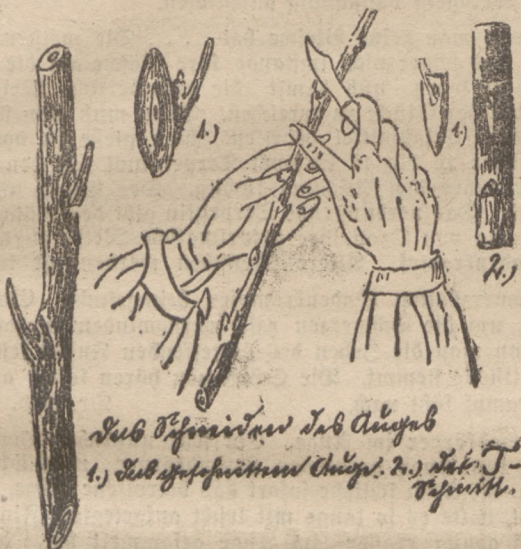 1.)
1.)
2.)
Das Schneiden des Auges
1.) Das geschnittene Auge. 2.) Der T-
Schnitt.